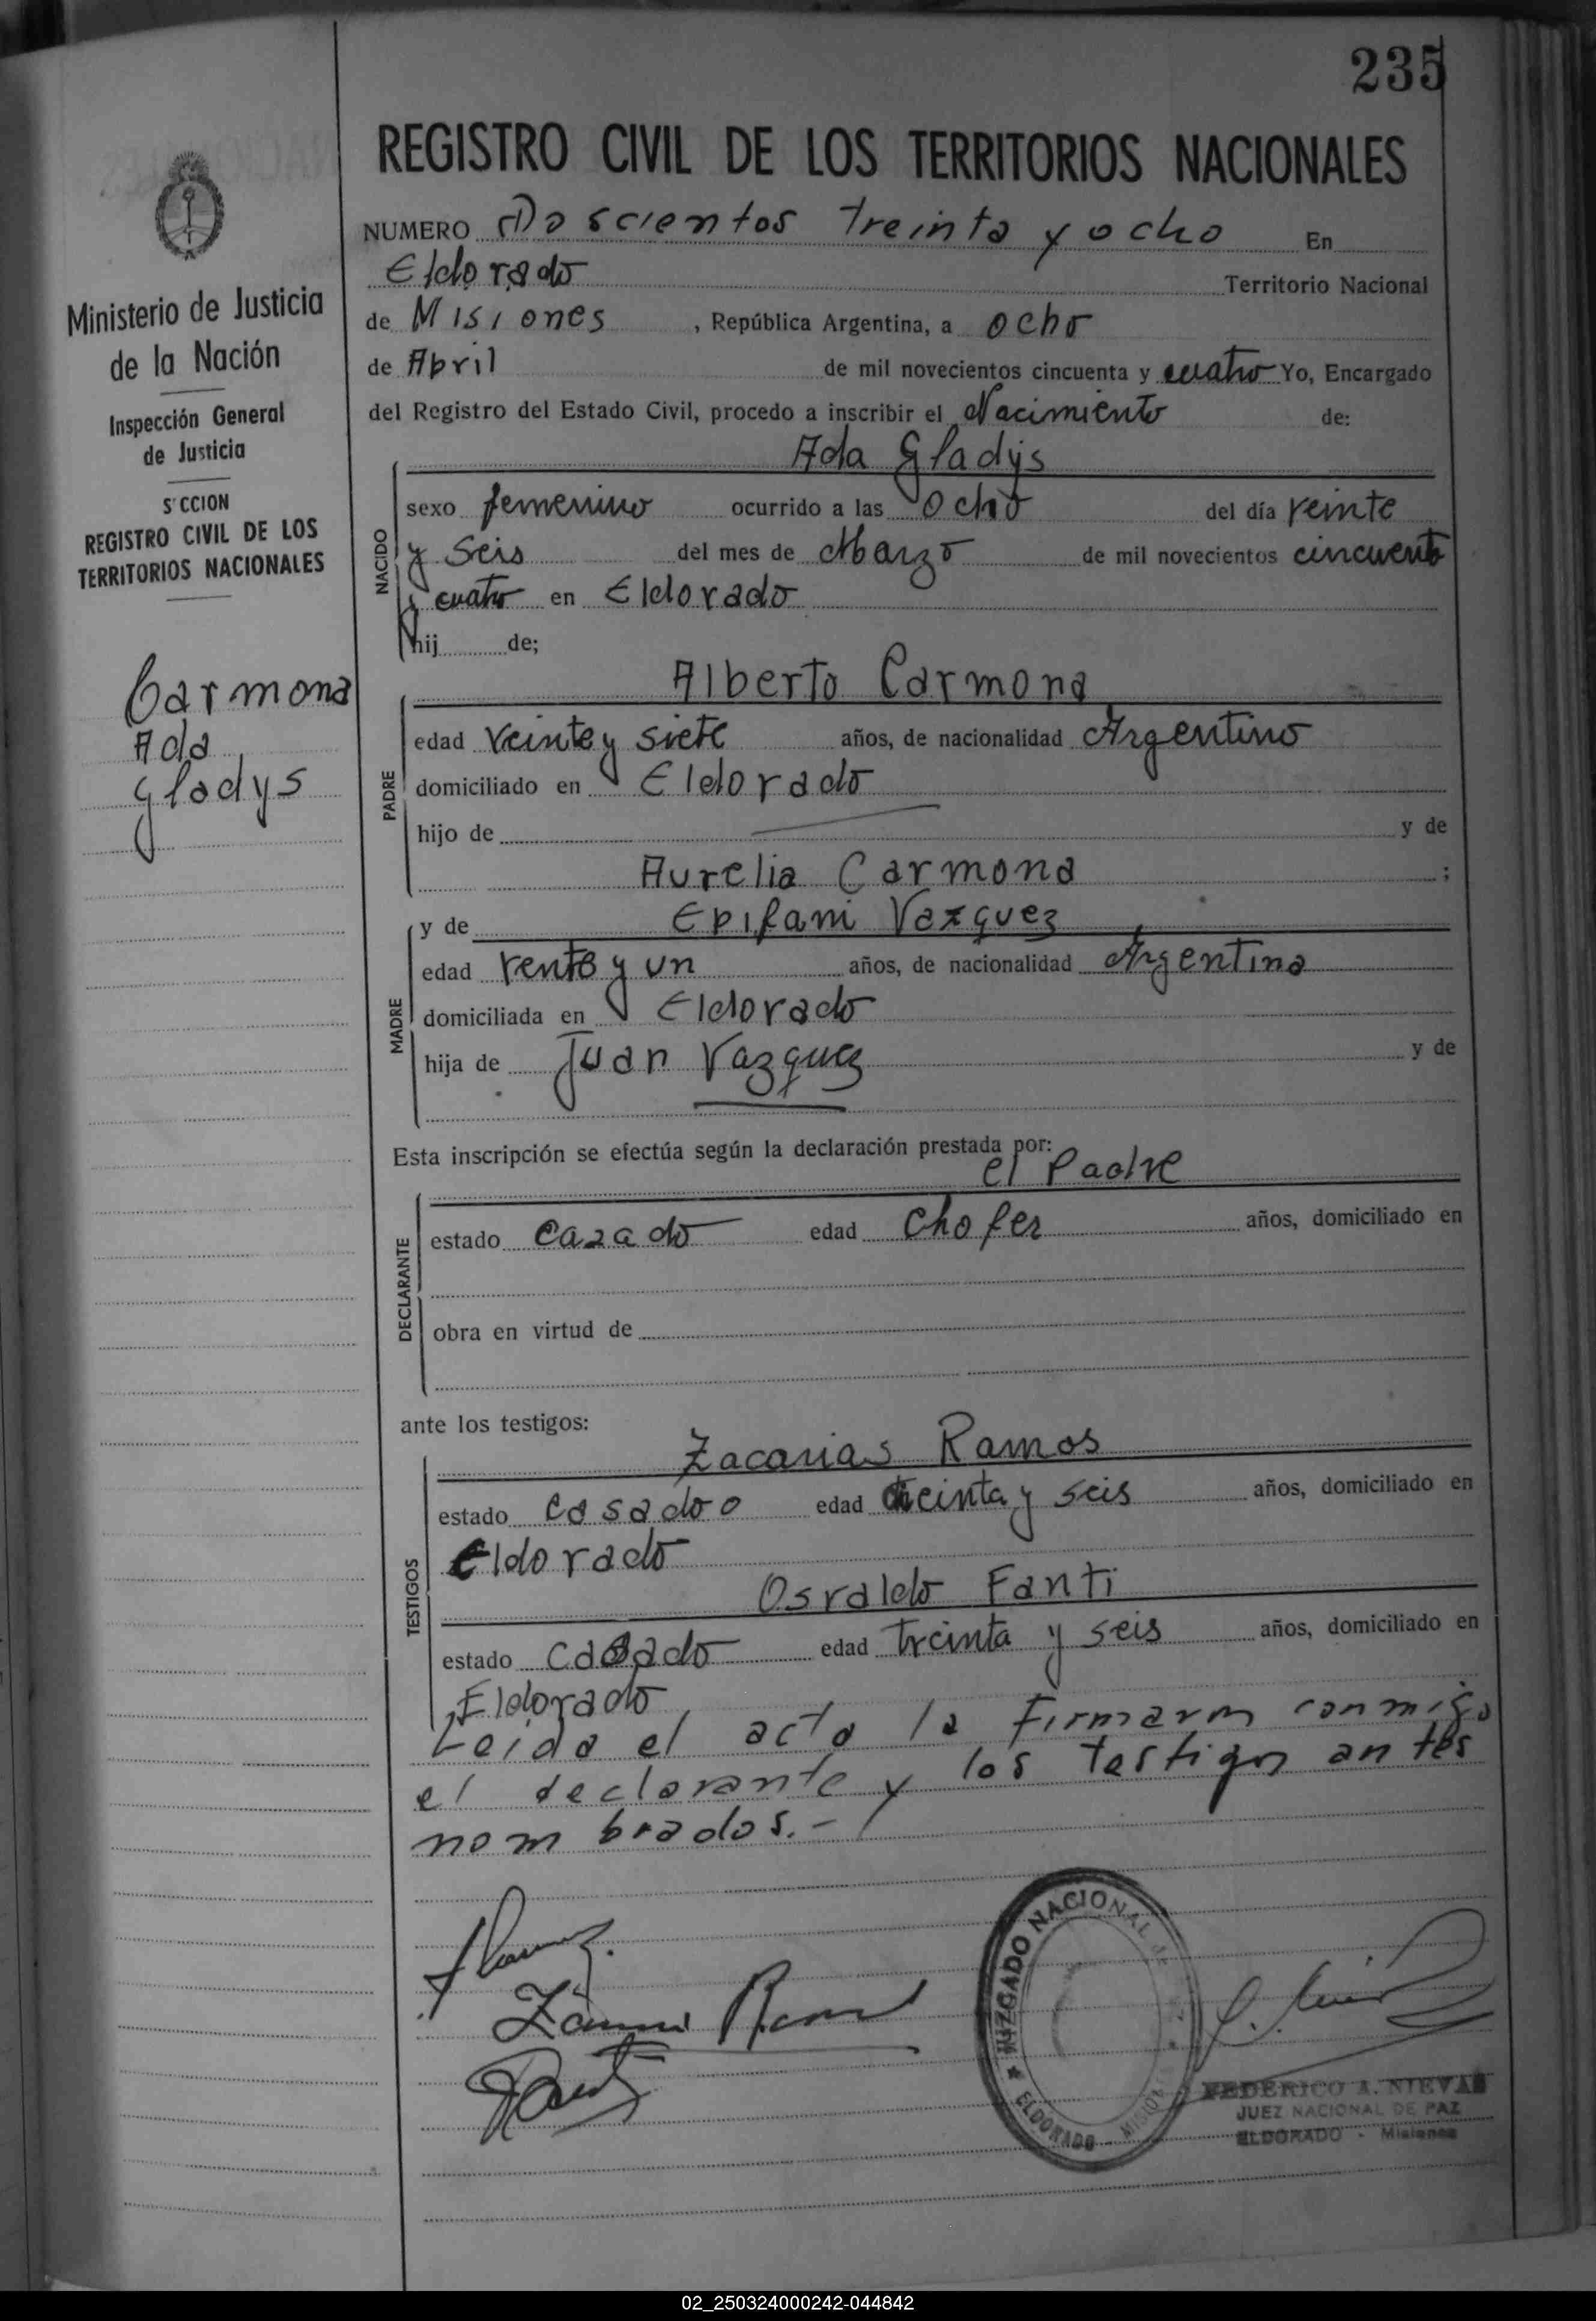 235
REGISTRO CIVIL DE LOS TERRITORIOS NACIONALES
NUMERO Doscientos treinta y ocho En
Eldorado Territorio Nacional
de Misiones , República Argentina, a ocho
de Abril de mil novecientos cincuenta y cuatro Yo, Encargado
del Registro del Estado Civil, procedo a inscribir el Nacimiento de:
Ministerio de Justicia
de la Nación
Inspección General
de Justicia
S'CCION
REGISTRO CIVIL DE LOS
TERRITORIOS NACIONALES
Carmona
Ada
Gladys
Ada Gladys
NACIDO
sexo femenino ocurrido a las ocho del día veinte
y seis del mes de Marzo de mil novecientos cincuenta
y cuatro en Eldorado
hij de;
Alberto Carmona
PADRE
edad veinte y siete años, de nacionalidad Argentino
domiciliado en Eldorado
hijo de y de
Aurelia Carmona ;
y de Epifani Vazquez
MADRE
edad vente y un años, de nacionalidad Argentina
domiciliada en Eldorado
hija de Juan Vazquez y de
Esta inscripción se efectúa según la declaración prestada por:
el Padre
DECLARANTE
estado cazado edad chofer años, domiciliado en
obra en virtud de
ante los testigos:
Zacarias Ramos
TESTIGOS
estado casado edad treinta y seis años, domiciliado en
Eldorado
Osvaldo Fanti
estado casado edad treinta y seis años, domiciliado en
Eldorado
Leida el acta la firmaron conmigo
el declarante y los testigos antes
nombrados.-
JUZGADO NACIONAL DE
ELDORADO - MISIONES
FEDERICO A. NIEVAS
JUEZ NACIONAL DE PAZ
ELDORADO - Misiones
02_250324000242-044842